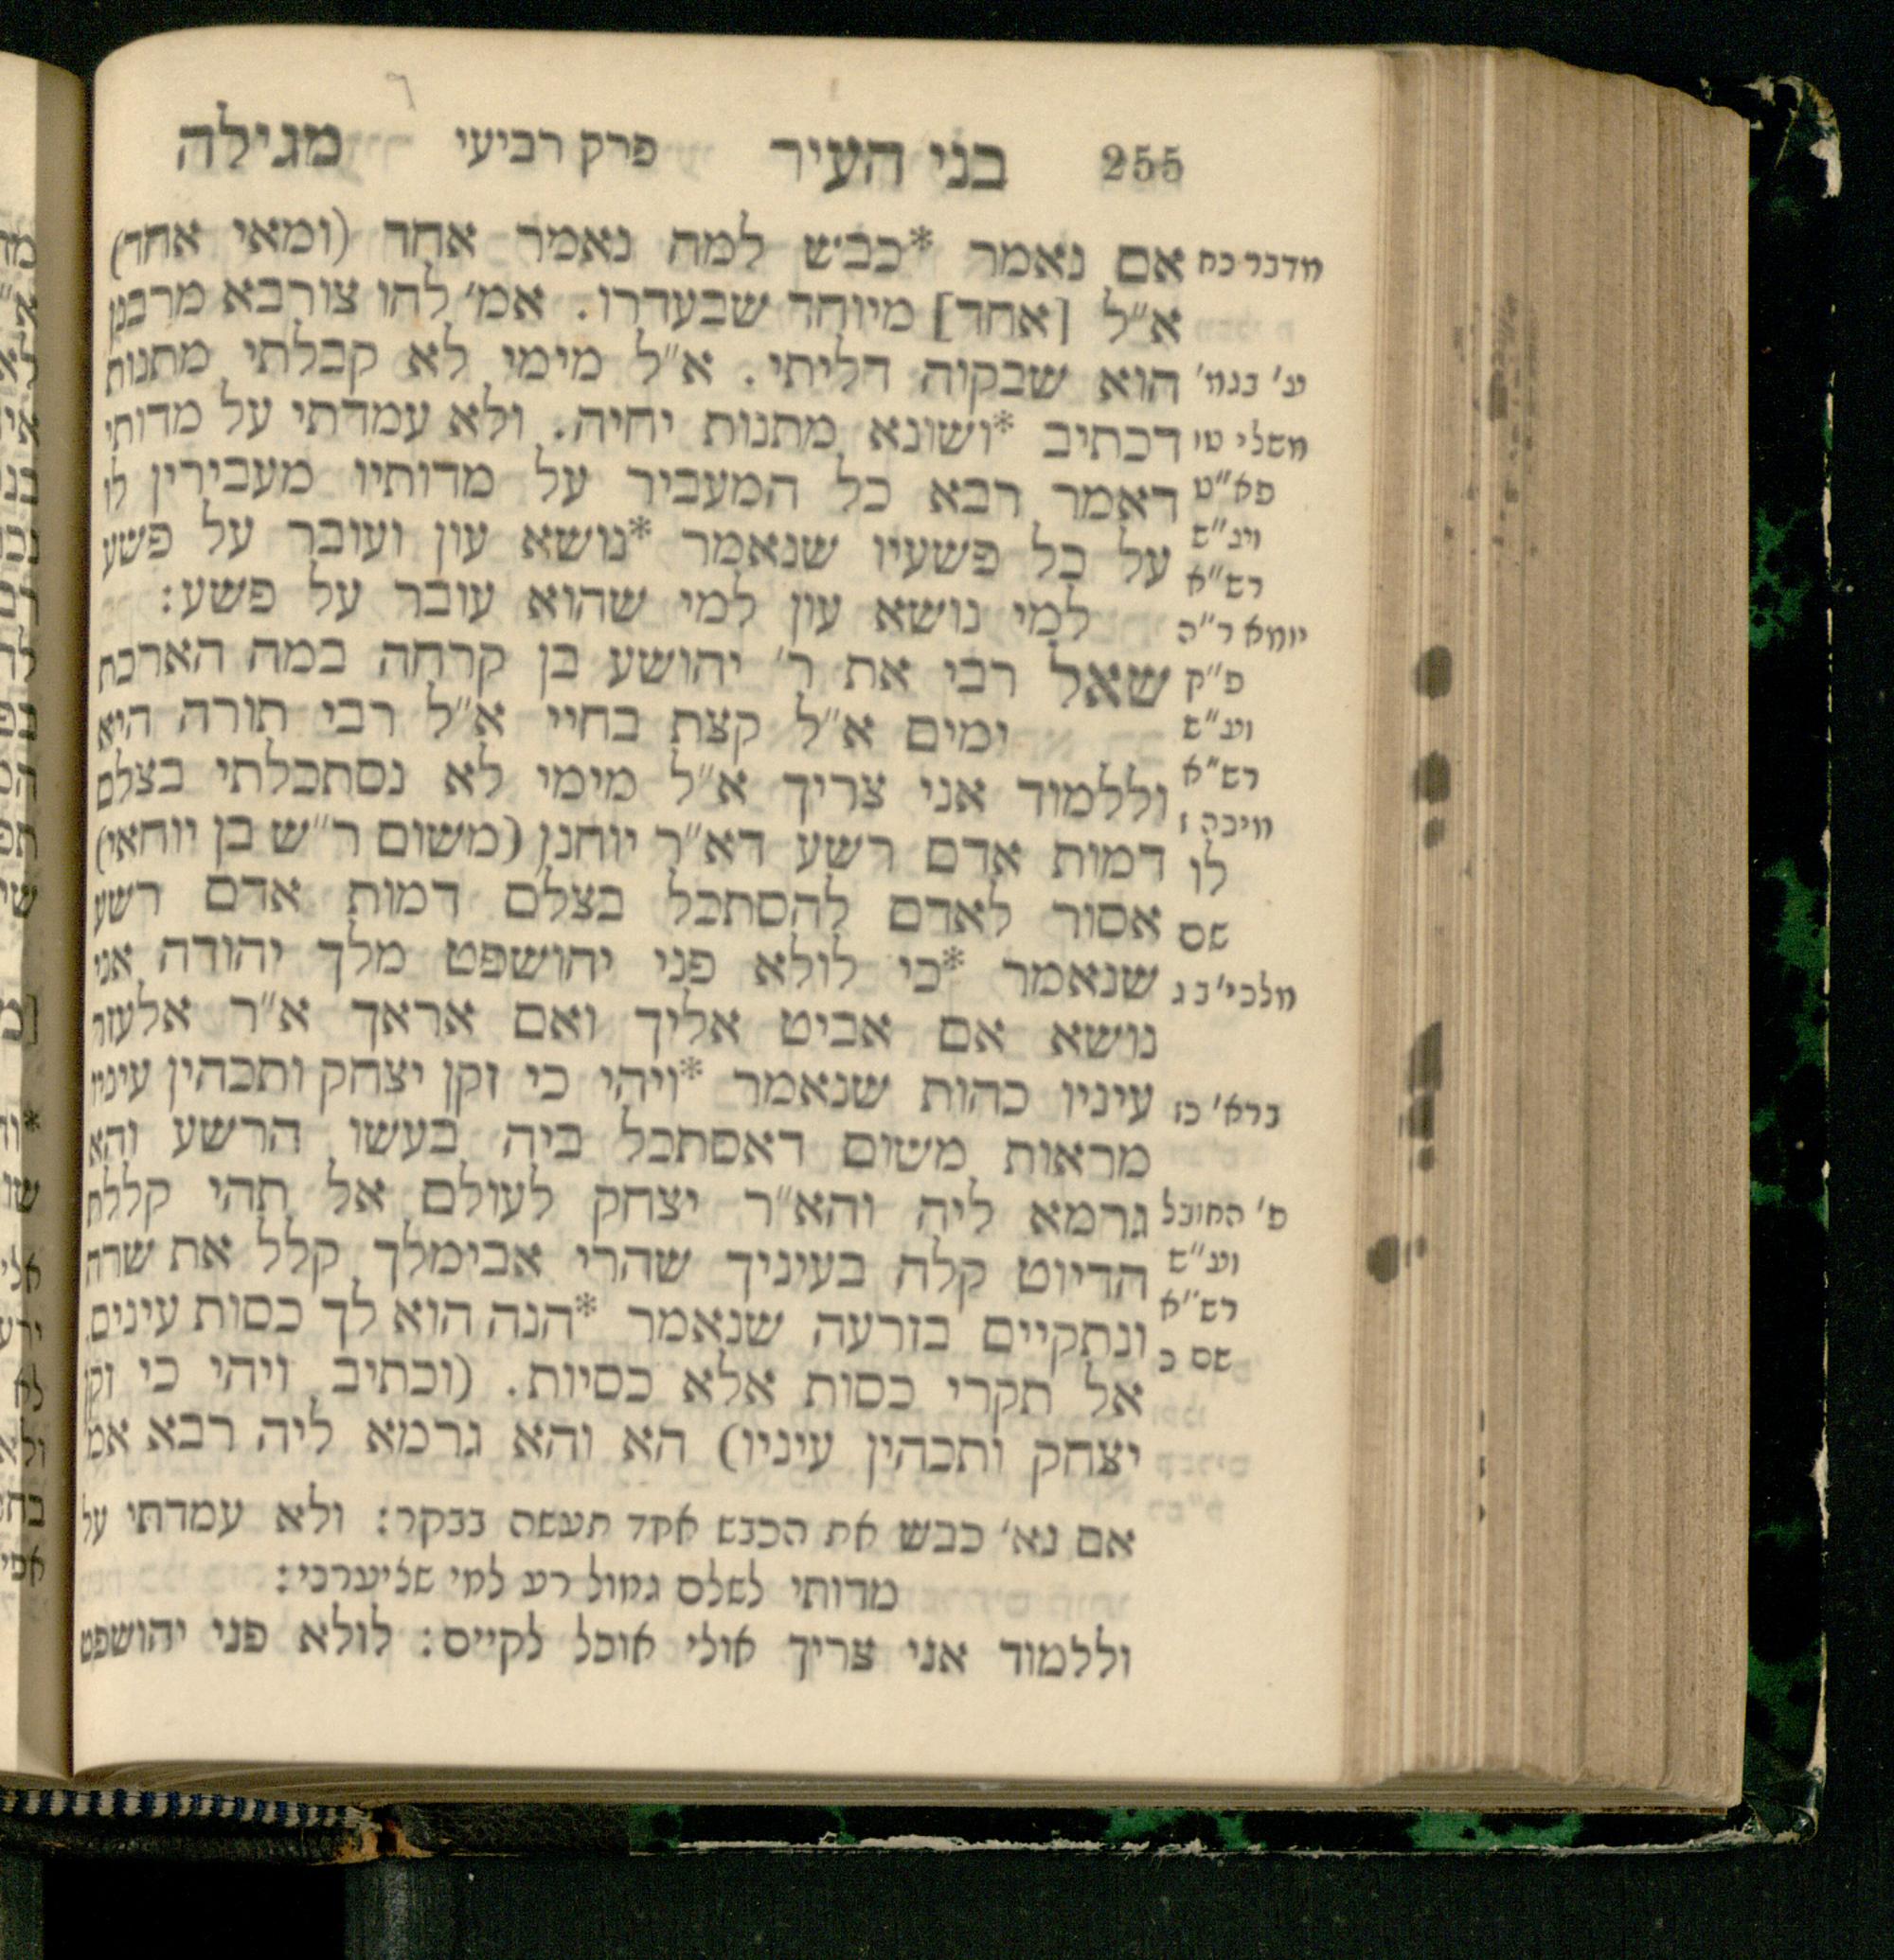 255 בני העיר פרק רביעי מגילה
מדבר כח אם נאמר *כבש למה נאמר אחד (ומאי אחד)
א״ל [אחד] מיוחד שבעדרו. אמ׳ להו צורבא מרבנן
ע׳ בגמ׳ הוא שבקוה דליתי. א״ל מימי לא קבלתי מתנות
משלי טו דכתיב *ושונא מתנות יחיה. ולא עמדתי על מדותי
פא״ט דאמר רבא כל המעביר על מדותיו מעבירין לו
ויג״ס על כל פשעיו שנאמר *נושא עון ועובר על פשע
רש״א
למי נושא עון למי שהוא עובר על פשע:
יומא ר״ה
פ״ק שאל רבי את ר׳ יהושע בן קרחה במה הארכת
וע״ש ימים א״ל קצת בחיי א״ל רבי תורה היא
רש״א וללמוד אני צריך א״ל מימי לא נסתכלתי בצלם
מיכה ז
לו דמות אדם רשע דא״ר יוחנן (משום ר״ש בן יוחאי)
שם אסור לאדם להסתכל בצלם דמות אדם רשע
מלכי׳ב ג שנאמר *כי לולא פני יהושפט מלך יהודה אני
נושא אם אביט אליך ואם אראך א״ר אלעזר
ברא׳ כז עיניו כהות שנאמר *ויהי כי זקן יצחק ותכהין עיניו
מראות משום דאסתכל ביה בעשו הרשע והא
פ׳ החובל גרמא ליה והא״ר יצחק לעולם אל תהי קללת
וע״ש הדיוט קלה בעיניך שהרי אבימלך קלל את שרה
רש״א
שם כ ונתקיים בזרעה שנאמר *הנה הוא לך כסות עינים.
אל תקרי כסות אלא כסיות. (וכתיב ויהי כי זקן
יצחק ותכהין עיניו) הא והא גרמא ליה רבא אמ׳
אם נא׳ כבש את הכבש אחד תעשה בבקר: ולא עמדתי על
מדותי לשלם גמול רע למי שליערני:
וללמוד אני צריך אולי אוכל לקיים: לולא פני יהושפט